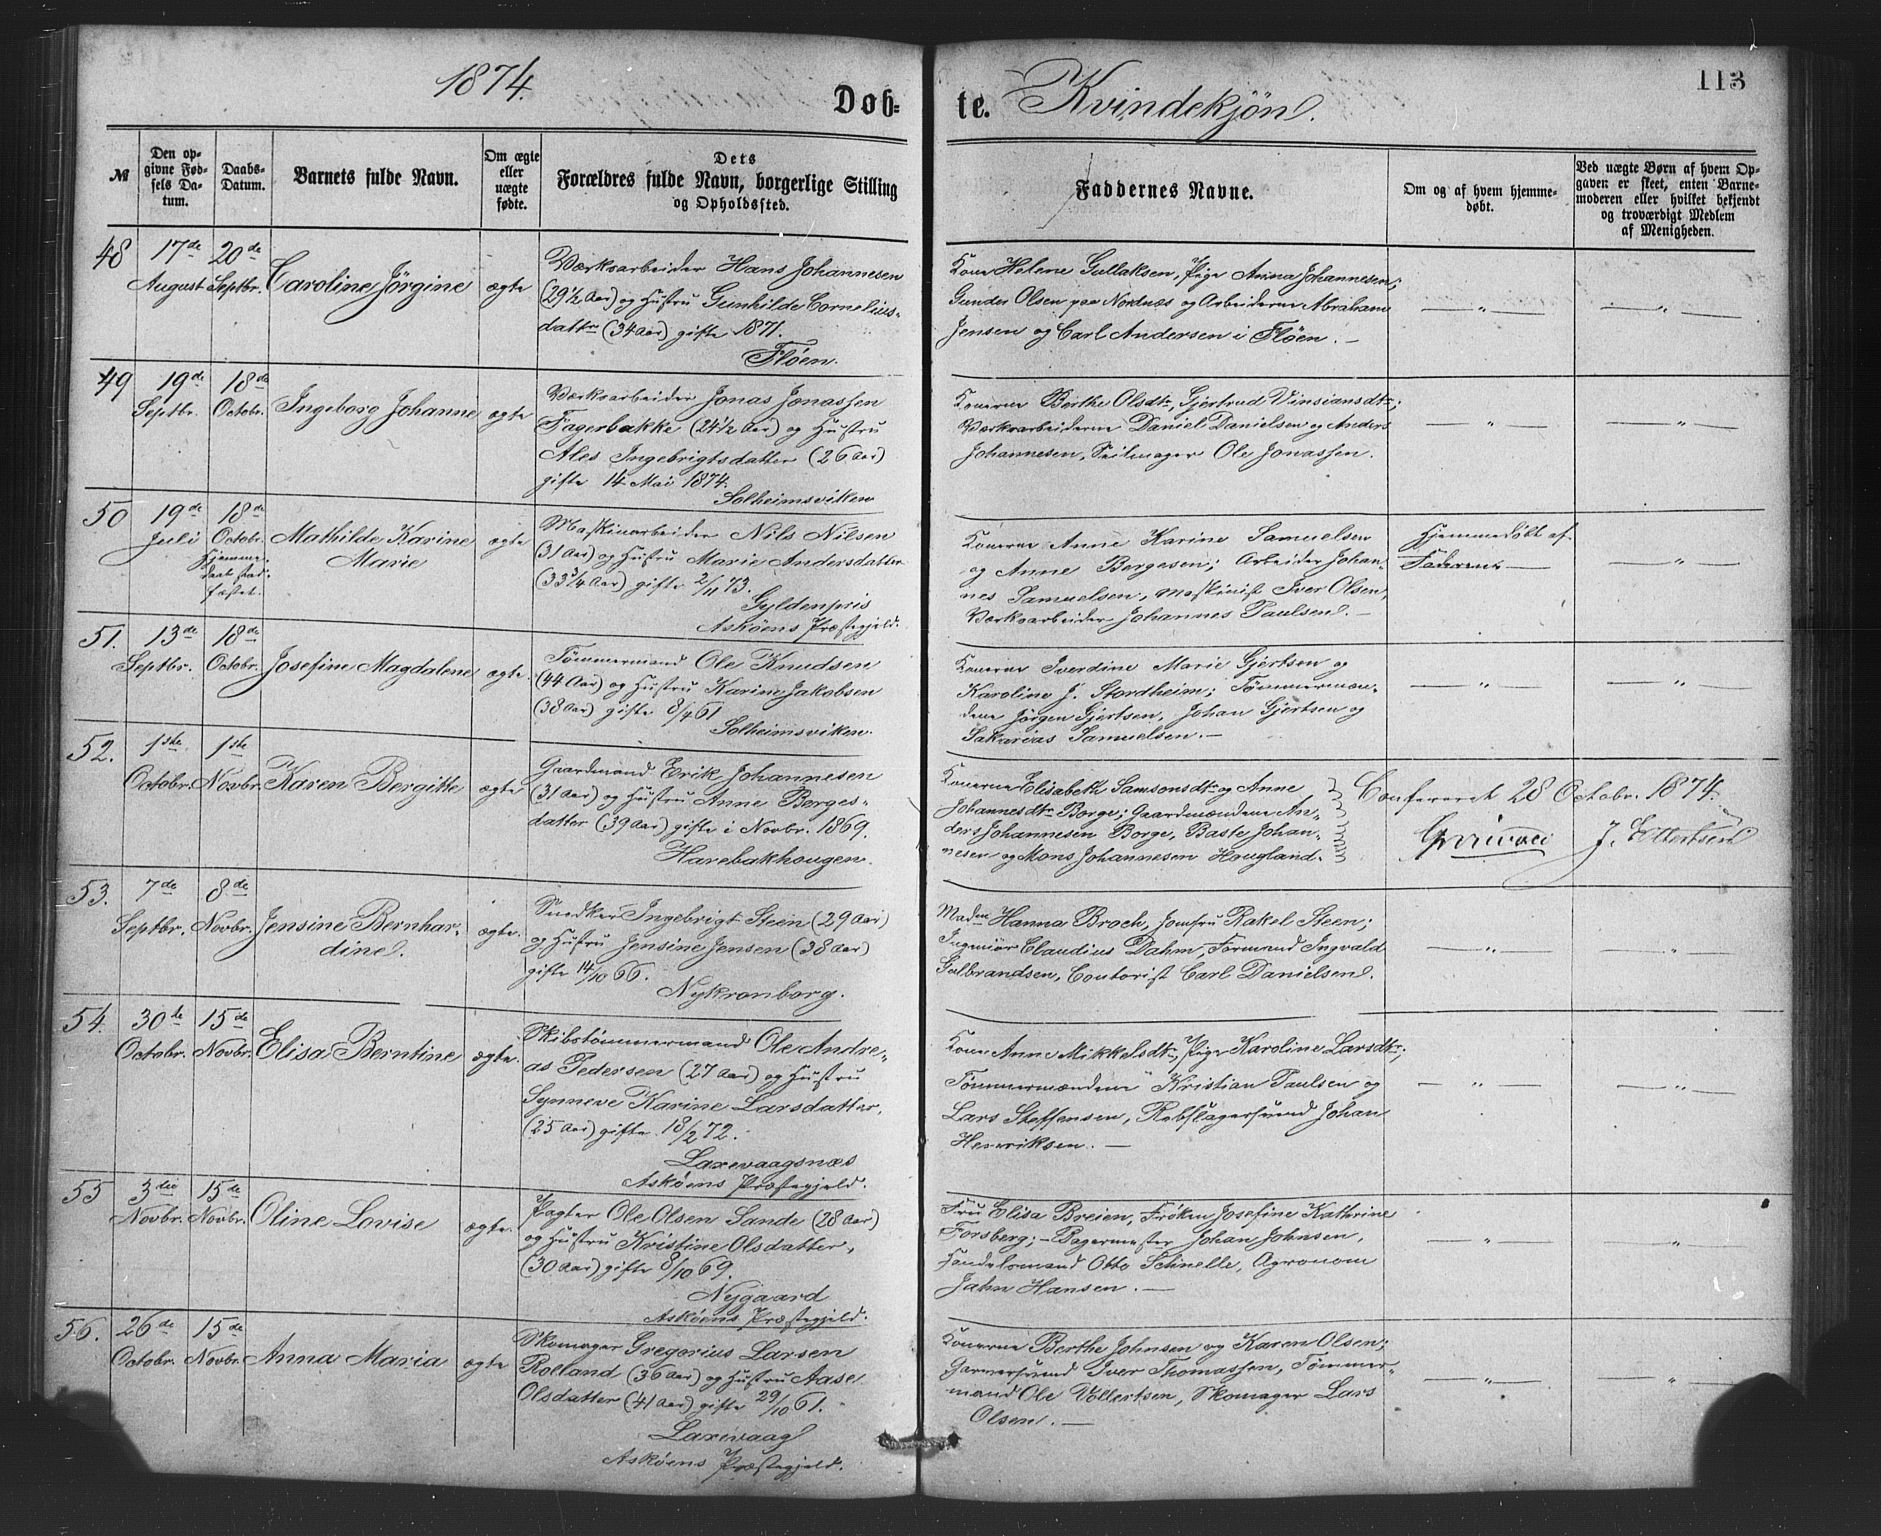 1874.
Dob=
te. Kvindekjøn.
113
№
Den opgivne Fødsels Datum.
Daabs-Datum.
Barnets fulde Navn.
Om ægte eller uægte fødte.
Dets Forældres fulde Navn, borgerlige Stilling og Opholdssted.
Faddernes Navne.
Om og af hvem hjemmedøbt.
Ved uægte Børn af hvem Opgaven er skeet, enten Barnemoderen eller hvilket bekjendt og troværdigt Medlem af Menigheden.
48
17de August
20de Septbr.
Caroline Jörgine
ægte
Værksarbeider Hans Johannesen
(29½ Aar) og Hustru Gunhilde Cornelius-
datter (34 Aar) gifte 1871.
Flöen.
Kone Helene Gullaksen, Pige Anna Johannesen;
Gunder Olsen paa Nordnæs og Arbeiderne Abraham
Jensen og Carl Andersen i Flöen. —
— " —
— " —
49
19de Septbr.
18de Octobr.
Ingeborg Johanne
ægte
Værksarbeider Jonas Jonassen
Fagerbakke (24½ Aar) og Hustru
Ales Ingebrigtsdatter (26 Aar)
gifte 14 Mai 1874.
Solheimsviken
Konerne Berthe Olsdtr, Gjertrud Vinsiansdtr;
Værksarbeiderne Daniel Danielsen og Anders
Johannesen, Seilmager Ole Jonassen.
— " —
— " —
50
19de Juli
18de Octobr. Hjemme-
daab stad-
fæstet.
Mathilde Karine
Marie
ægte
Maskinarbeider Nils Nilsen
(31 Aar) og Hustru Marie Andersdatter
(33¾ Aar) gifte 2/11 73.
Gyldenpris
Asköens Præstegjeld.
Konerne Anne Karine Samuelsen
og Anne Børgesen; Arbeider Johan-
nes Samuelsen, Maskinist Iver Olsen,
Værksarbeider Johannes Paulsen. —
Hjemmedöbt af
Faderen —
— " —
51.
13de Septbr.
18de Octobr.
Josefine Magdalene
ægte.
Tömmermand Ole Knudsen
(44 Aar) og Hustru Karine Jakobsen
(38 Aar) gifte 8/4 61.
Solheimsviken.
Konerne Iverdine Marie Gjertsen og
Karoline J. Stordheim; Tömmermæn-
dene Jörgen Gjertsen, Johan Gjertsen og
Sakarias Samuelsen. —
— " —
— " —
52.
1ste Octobr.
1ste Novbr.
Karen Bergitte
ægte
Gaardmand Erik Johannesen
(31 Aar) og Hustru Anne Børges-
datter (39 Aar) gifte i Novbr. 1869.
Harebakhougen.
Konerne Elisabeth Samsonsdtr og Anne
Johannesdtr Borge; Gaardmændene An-
ders Johannesen Borge, Baste Johan-
nesen og Mons Johannesen Hougland.
Confereret 28 Octobr. 1874.
J. Ellertsen
53.
7de Septbr.
8de Novbr.
Jensine Bernhar-
dine.
ægte.
Snedker Ingebrigt Steen (29 Aar)
og Hustru Jensine Jensen (38 Aar)
gifte 14/10 66.
Nykronborg.
Madm Hanna Broch, Jomfru Rakel Steen;
Ingeniör Claudius Dahm, Formand Ingvald
Gulbrandsen, Contorist Carl Danielsen.
— " —
"
54.
30te Octobr.
15de Novbr.
Elisa Berntine
ægte.
Skibstömmermand Ole Andre-
as Pedersen (27 Aar) og Hustru
Synneve Karine Larsdatter,
(25 Aar) gifte 18/2 72.
Laxevaagsnæs
Asköens Præstegjeld.
Kone Anne Mikkelsdtr, Pige Karoline Larsdtr;
Tömmermændene Kristian Paulsen og
Lars Steffensen, Rebslagersvend Johan
Henriksen. —
— " —
— " —
55
3die Novbr.
15de Novbr.
Oline Lovise
ægte.
Pagter Ole Olsen Sande (28 Aar)
og Hustru Kristine Olsdatter,
(30 Aar) gifte 8/10 69.
Nygaard
Asköens Præstegjeld.
Fru Elisa Breien, Fröken Josefine Kathrine
Forsberg; – Bagermester Johan Johnsen,
Handelsmand Otto Schnelle, Agronom
Jahn Hansen. —
— " —
"
56.
26de Octobr.
15de Novbr.
Anna Maria
ægte
Skomager Gregorius Larsen
Rolland (36 Aar) og Hustru Aase
Olsdatter (41 Aar) gifte 29/10 61.
Laxevaag
Asköens Præstegjeld.
Konerne Berthe Johnsen og Karen Olsen;
Garversvend Iver Thomassen, Tömmer-
mand Ole Vollertsen, Skomager Lars
Olsen. —
— " —
— " —